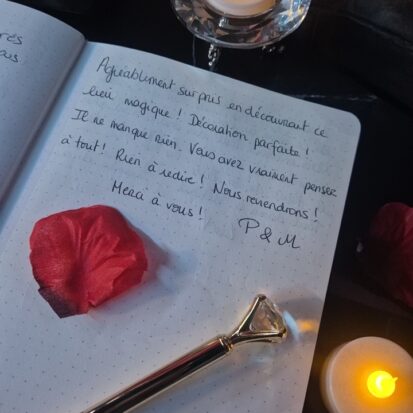 rés
ous
Agréablement surpris en découvrant ce
lieu magique ! Décoration parfaite !
Il ne manque rien. Vous avez vraiment penser
à tout ! Rien à redire ! Nous reviendrons !
Merci à vous !
P & M